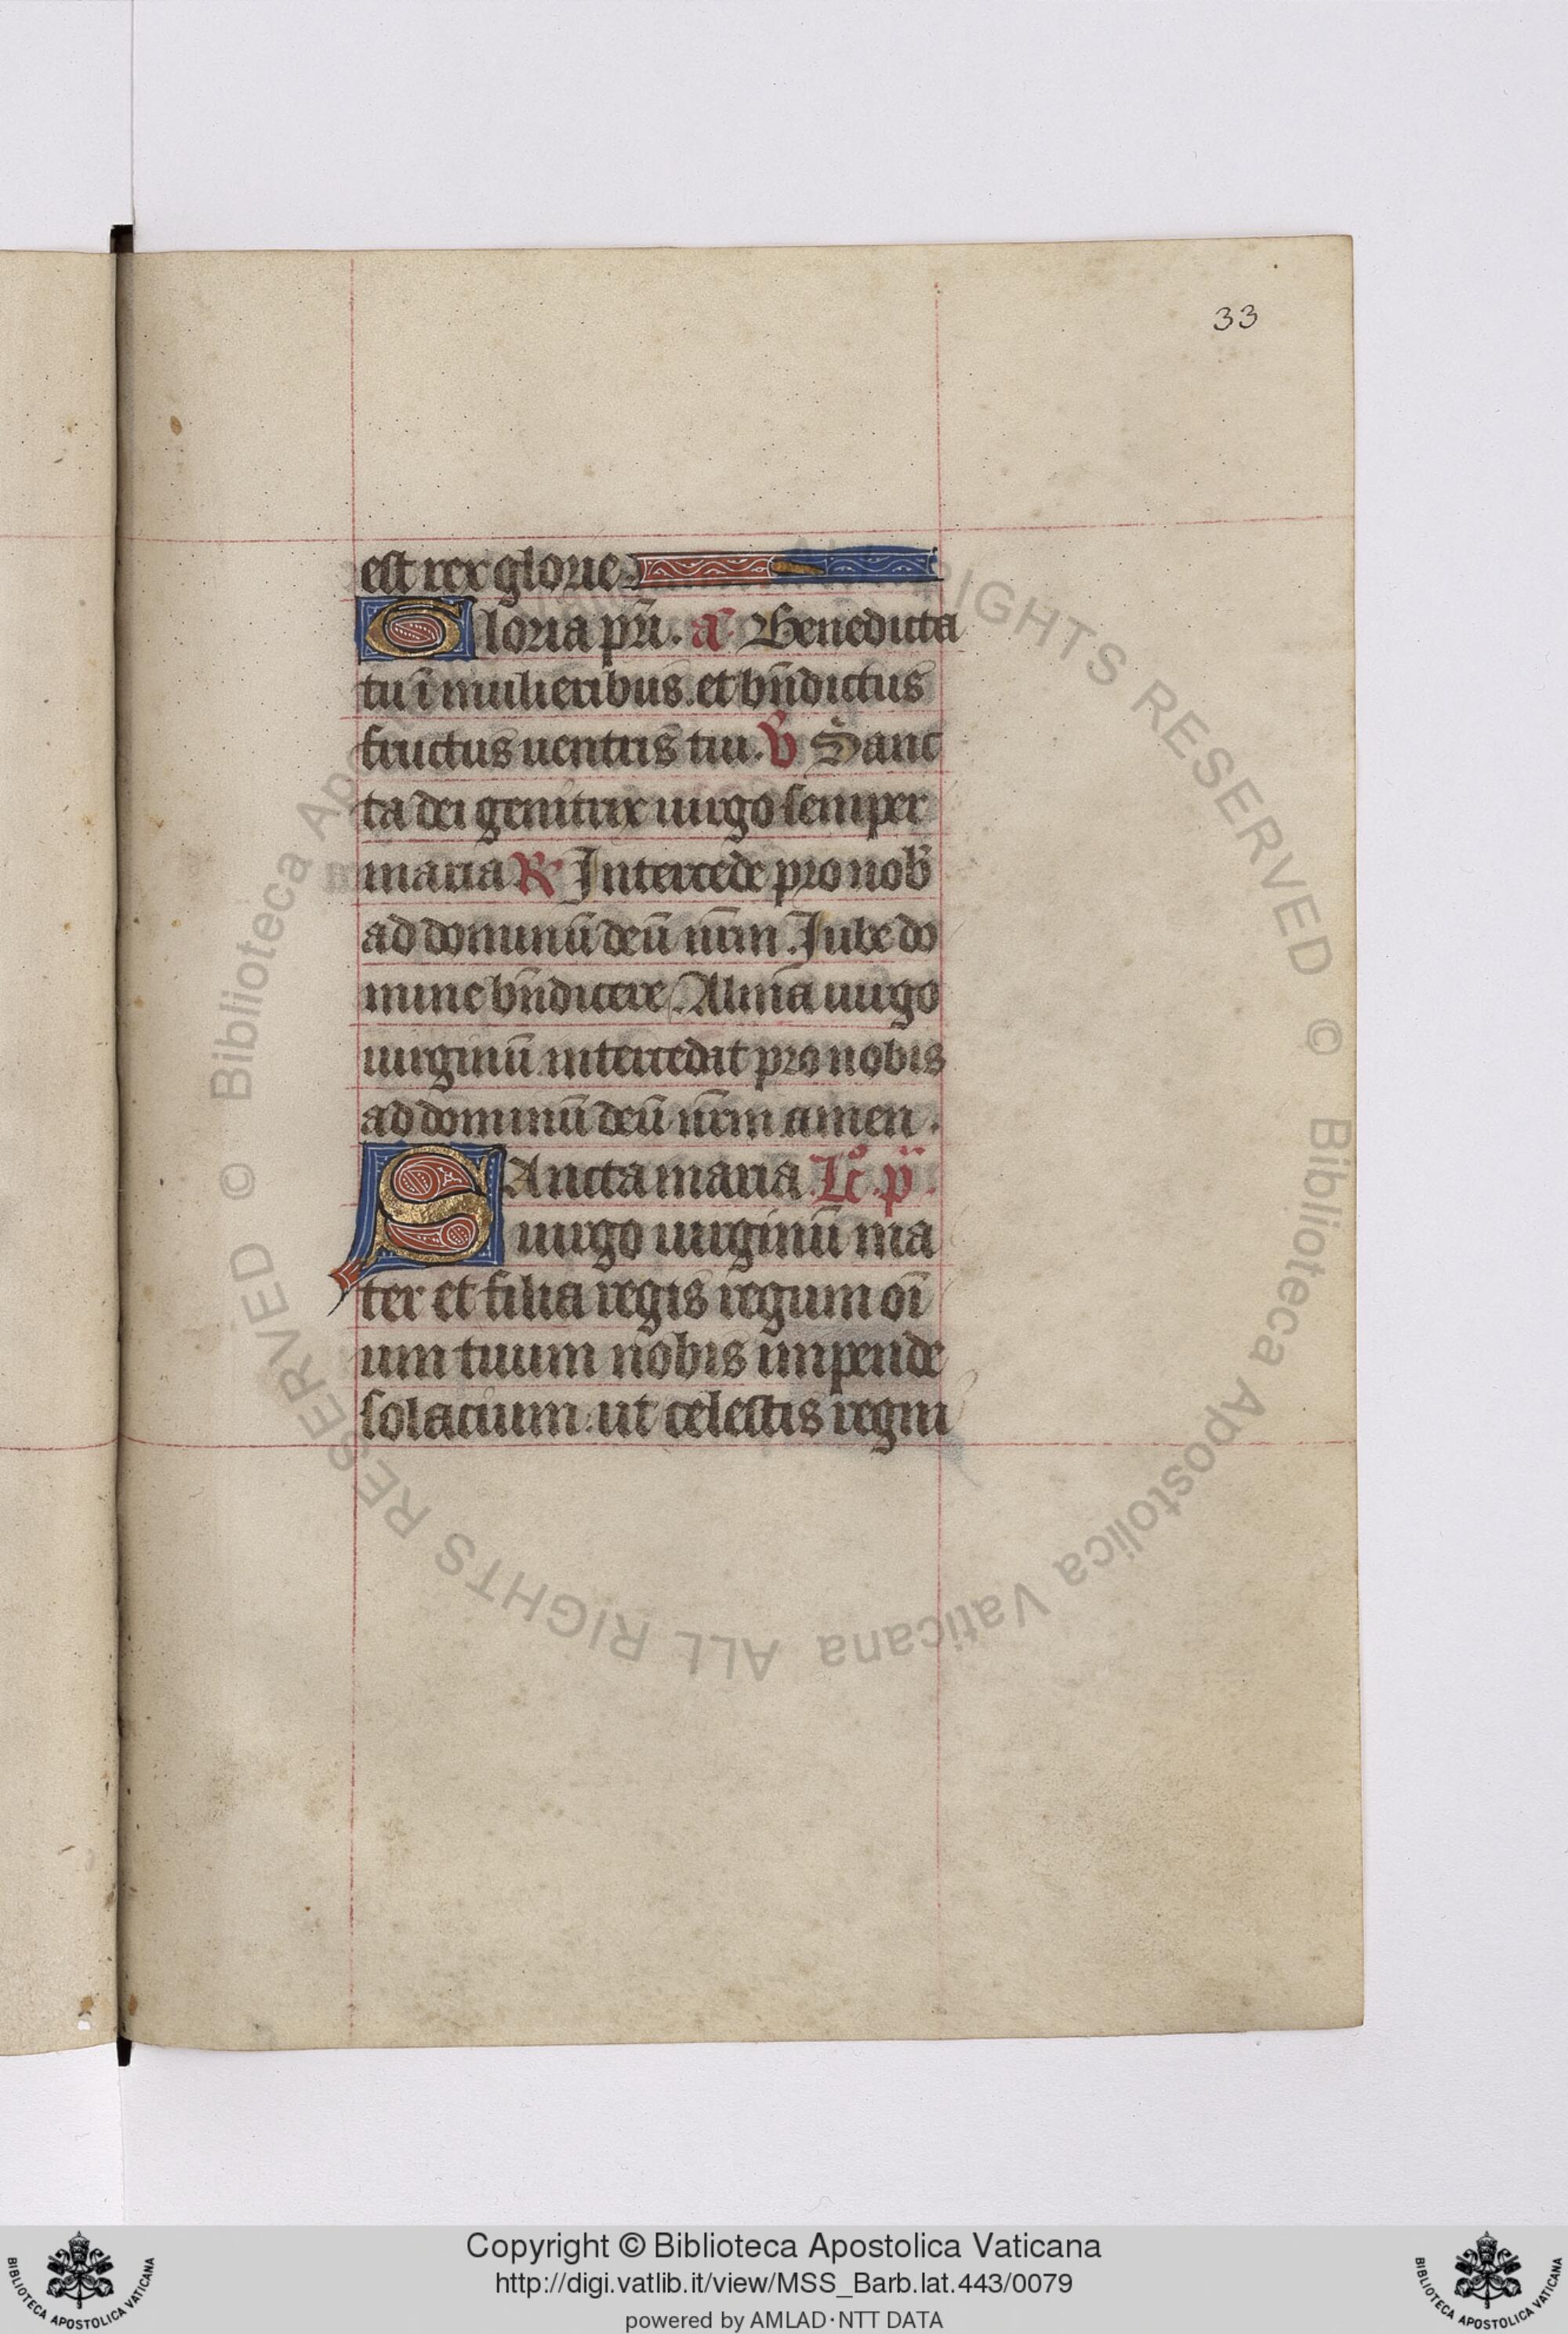 33
est rex glorie.
Gloria pri. a. Benedicta
tu ī mulieribus. et bn̄dictus
fructus uentris tui. v̄ Sanc
ta dei genitrix uirgo semper
maria R̄ Intercede pro nob̄
ad dominū deū nr̄m. Iube do
mine bn̄dicere. Alma uirgo
uirginū intercedat pro nobis
ad dominū deū nr̄m amen.
SAncta maria Lc̄o. pa.
uirgo uirginū ma
ter et filia regis regum oī
um tuum nobis impende
solacium. ut celestis regni
© Biblioteca Apostolica Vaticana ALL RIGHTS RESERVED © Biblioteca Apostolica Vaticana ALL RIGHTS RESERVED
Copyright © Biblioteca Apostolica Vaticana
http://digi.vatlib.it/view/MSS_Barb.lat.443/0079
powered by AMLAD·NTT DATA
BIBLIOTECA APOSTOLICA VATICANA
BIBLIOTECA APOSTOLICA VATICANA